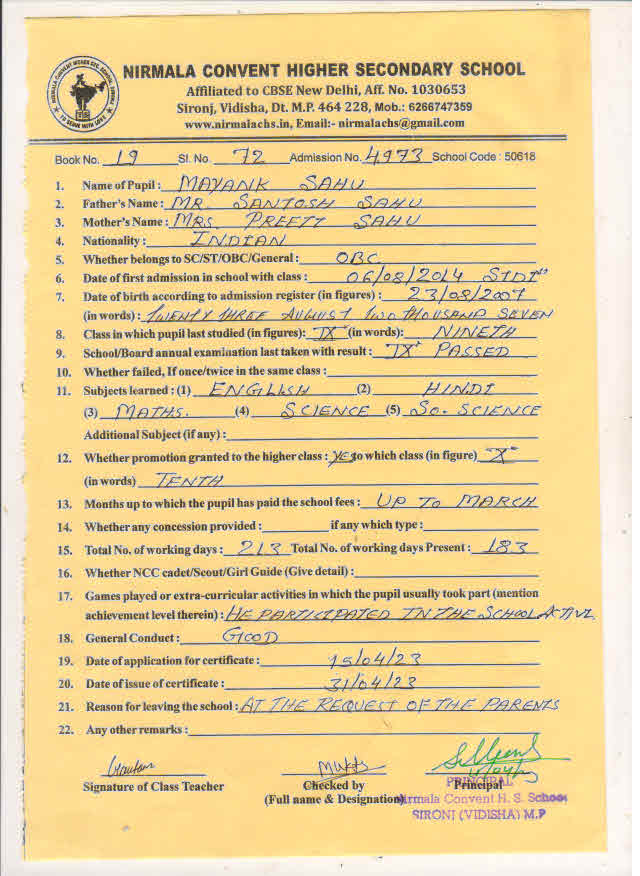 NIRMALA CONVENT HIGHER SECONDARY SCHOOL
Affiliated to CBSE New Delhi, Aff. No. 1030653
Sironj, Vidisha, Dt. M.P. 464 228, Mob.: 6266747359
www.nirmalachs.in, Email:- nirmalachs@gmail.com
NIRMALA CONVENT HIGHER SEC. SCHOOL, SIRONJ
TO SERVE WITH LOVE
Book No. 19 Sl. No. 72 Admission No. 4973 School Code : 50618
1. Name of Pupil : MAYANK SAHU
2. Father's Name : MR. SANTOSH SAHU
3. Mother's Name : MRS. PREETI SAHU
4. Nationality : INDIAN
5. Whether belongs to SC/ST/OBC/General : OBC
6. Date of first admission in school with class : 06/08/2014 STD I
7. Date of birth according to admission register (in figures) : 23/08/2007
(in words) : TWENTY THREE AUGUST TWO THOUSAND SEVEN
8. Class in which pupil last studied (in figures): IX (in words): NINETH
9. School/Board annual examination last taken with result : IX PASSED
10. Whether failed, If once/twice in the same class :
11. Subjects learned : (1) ENGLISH (2) HINDI
(3) MATHS. (4) SCIENCE (5) SO. SCIENCE
Additional Subject (if any) :
12. Whether promotion granted to the higher class : YES to which class (in figure) X
(in words) TENTH
13. Months up to which the pupil has paid the school fees : UP TO MARCH
14. Whether any concession provided : if any which type :
15. Total No. of working days : 213 Total No. of working days Present : 183
16. Whether NCC cadet/Scout/Girl Guide (Give detail) :
17. Games played or extra-curricular activities in which the pupil usually took part (mention
achievement level therein) : HE PARTICIPATED IN THE SCHOOL ACTIVI.
18. General Conduct : GOOD
19. Date of application for certificate : 15/04/23
20. Date of issue of certificate : 31/04/23
21. Reason for leaving the school : AT THE REQUEST OF THE PARENTS
22. Any other remarks :
Signature of Class Teacher Checked by Principal
(Full name & Designation)
PRINCIPAL
Nirmala Convent H. S. School
SIRONJ (VIDISHA) M.P